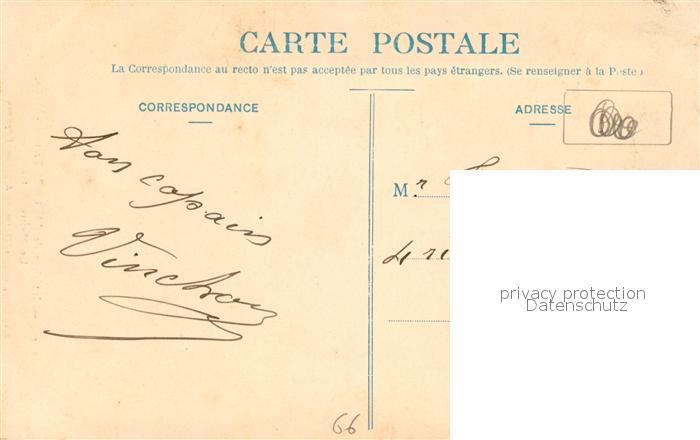 CARTE POSTALE
La Correspondance au recto n'est pas acceptée par tous les pays étrangers. (Se renseigner à la Poste)
CORRESPONDANCE
ADRESSE
copain
Mr
4
privacy protection
Datenschutz
66